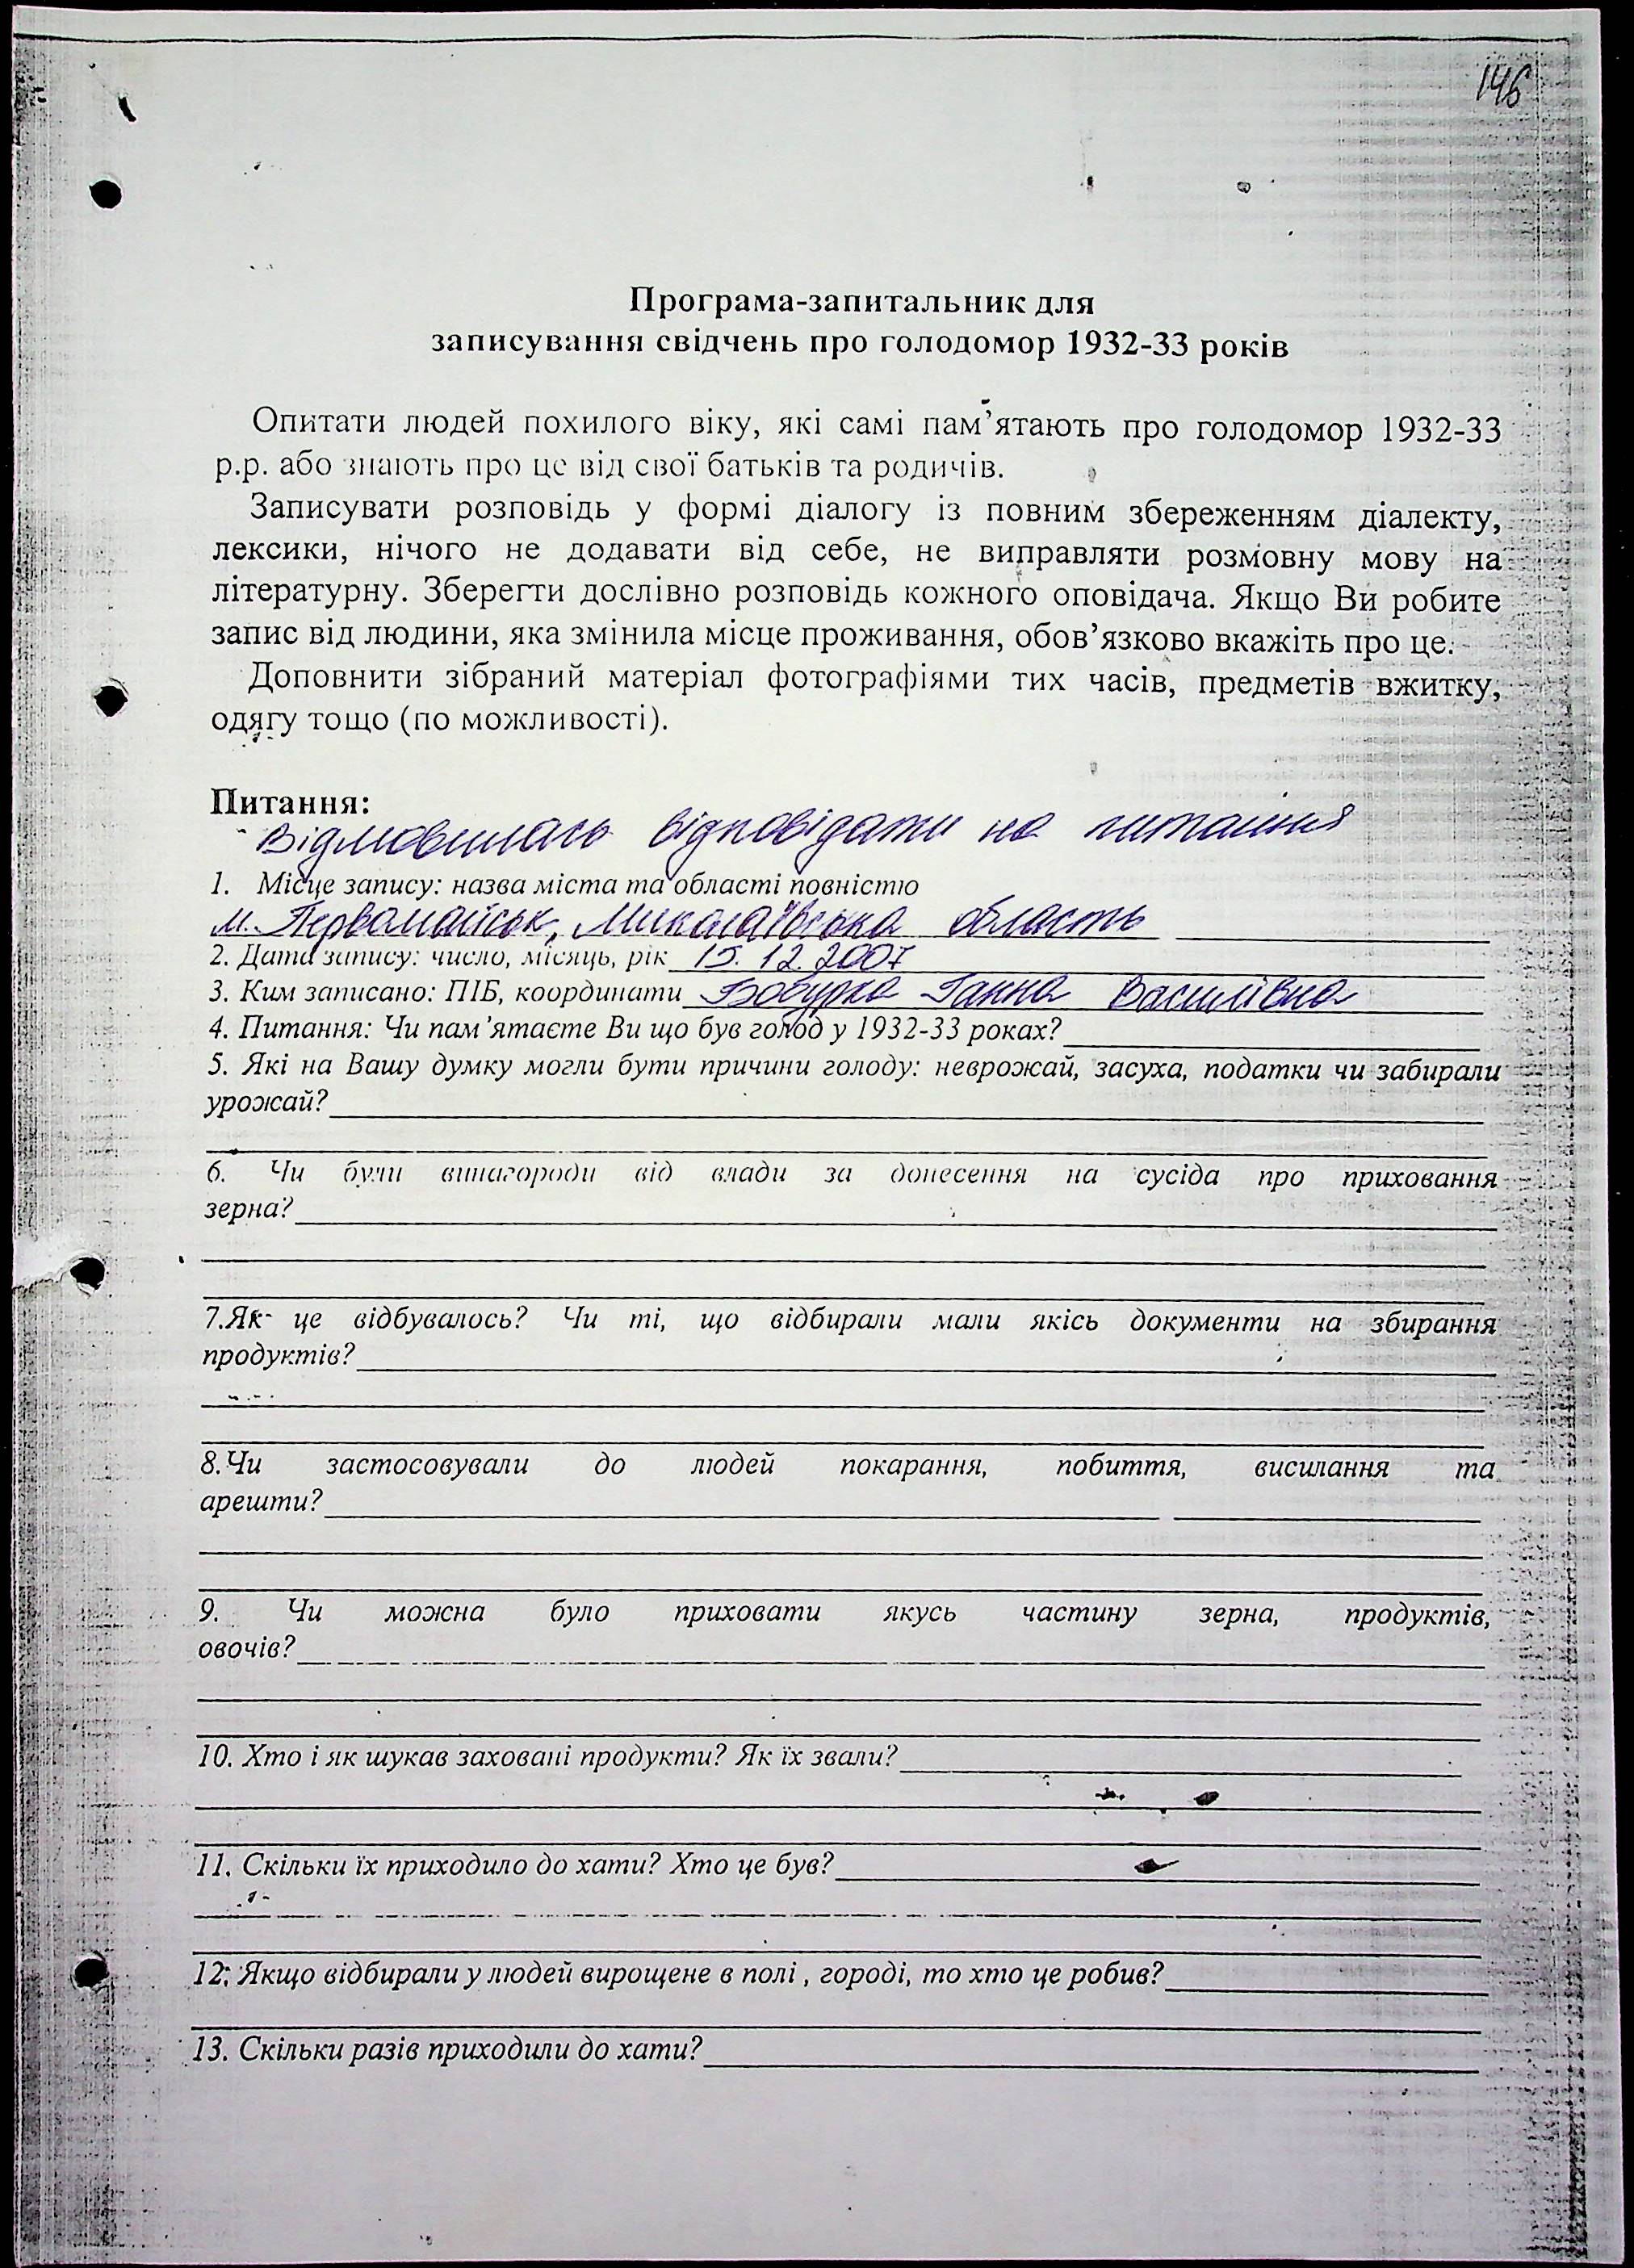 146
Програма-запитальник для
записування свідчень про голодомор 1932-33 років
Опитати людей похилого віку, які самі пам’ятають про голодомор 1932-33
р.р. або знають про це від свої батьків та родичів.
Записувати розповідь у формі діалогу із повним збереженням діалекту,
лексики, нічого не додавати від себе, не виправляти розмовну мову на
літературну. Зберегти дослівно розповідь кожного оповідача. Якщо Ви робите
запис від людини, яка змінила місце проживання, обов’язково вкажіть про це.
Доповнити зібраний матеріал фотографіями тих часів, предметів вжитку,
одягу тощо (по можливості).
Питання:
Відмовилась відповідати на питання
1. Місце запису: назва міста та області повністю
м. Первомайськ, Миколаївська область
2. Дата запису: число, місяць, рік 15. 12. 2007
3. Ким записано: ПІБ, координати Бобурка Ганна Василівна
4. Питання: Чи пам’ятаєте Ви що був голод у 1932-33 роках?
5. Які на Вашу думку могли бути причини голоду: неврожай, засуха, податки чи забирали
урожай?
6. Чи були винагороди від влади за донесення на сусіда про приховання
зерна?
7.Як це відбувалось? Чи ті, що відбирали мали якісь документи на збирання
продуктів?
8.Чи застосовували до людей покарання, побиття, висилання та
арешти?
9. Чи можна було приховати якусь частину зерна, продуктів,
овочів?
10. Хто і як шукав заховані продукти? Як їх звали?
11. Скільки їх приходило до хати? Хто це був?
12. Якщо відбирали у людей вирощене в полі , городі, то хто це робив?
13. Скільки разів приходили до хати?